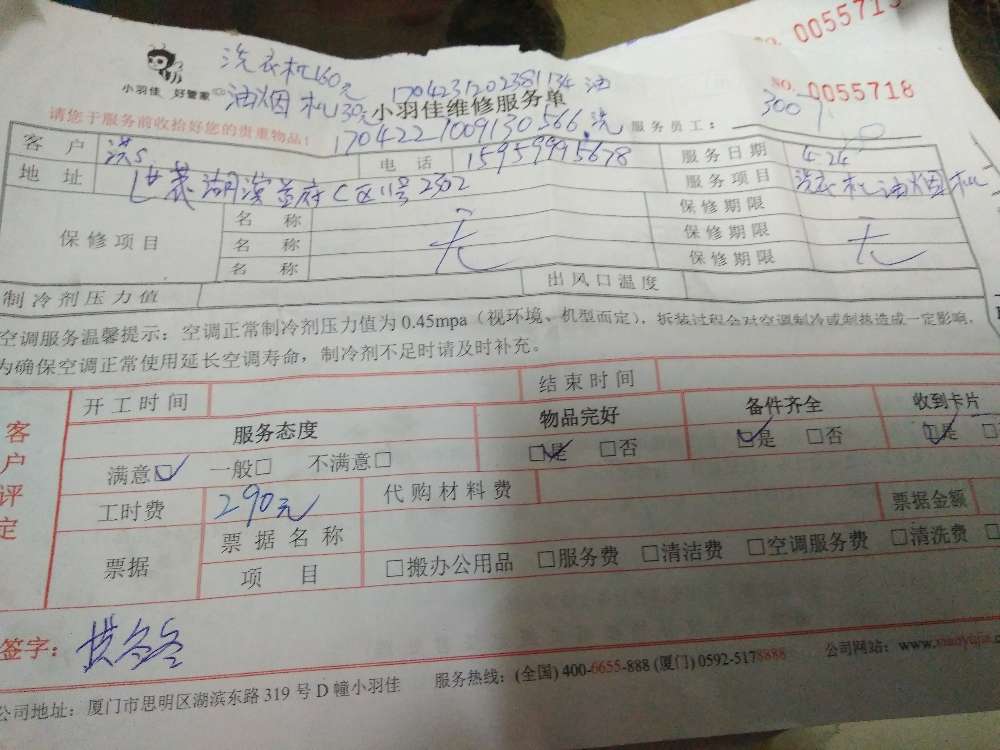 0055715
洗衣机160元
小羽佳 好管家
油烟机130元
1704231202381134 油
小羽佳维修服务单
NO. 0055718
请您于服务前收拾好您的贵重物品!
1704221009130566 洗
服务员工: 3007
客户 洪S 电话 15959995678 服务日期 4-24
地址 世茂湖滨首府C区11号2302 服务项目 洗衣机油烟机
保修项目 名称 无 保修期限 无
名称 保修期限
名称 保修期限
制冷剂压力值 出风口温度
空调服务温馨提示:空调正常制冷剂压力值为0.45mpa(视环境、机型而定),拆装过程会对空调制冷或制热造成一定影响,
为确保空调正常使用延长空调寿命,制冷剂不足时请及时补充。
客户评定
开工时间 结束时间
服务态度 物品完好 备件齐全 收到卡片
满意☑ 一般□ 不满意□ ☑是 □否 ☑是 □否 ☑是 □
工时费 290元 代购材料费 票据金额
票据 票据名称
项目 □搬办公用品 □服务费 □清洁费 □空调服务费 □清洗费 □
签字:
公司地址:厦门市思明区湖滨东路319号D幢小羽佳 服务热线:(全国)400-6655-888 (厦门)0592-5178888 公司网站:www.xiaoyujia.